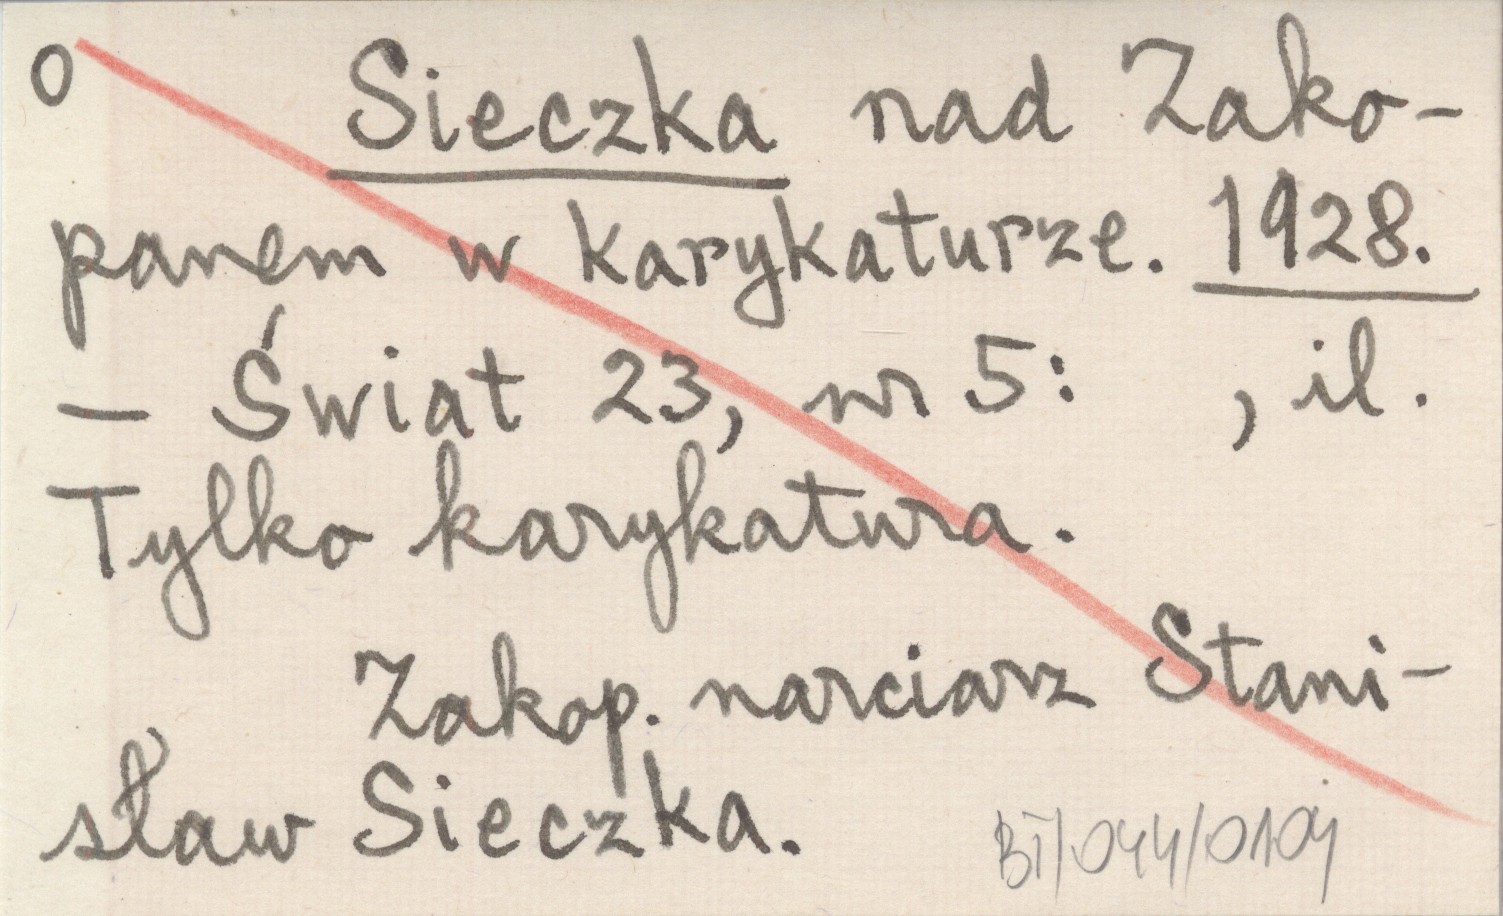 O Sieczka nad Zako-
panem w karykaturze. 1928.
– Świat 23, nr 5: , il.
Tylko karykatura.
Zakop. narciarz Stani-
sław Sieczka.